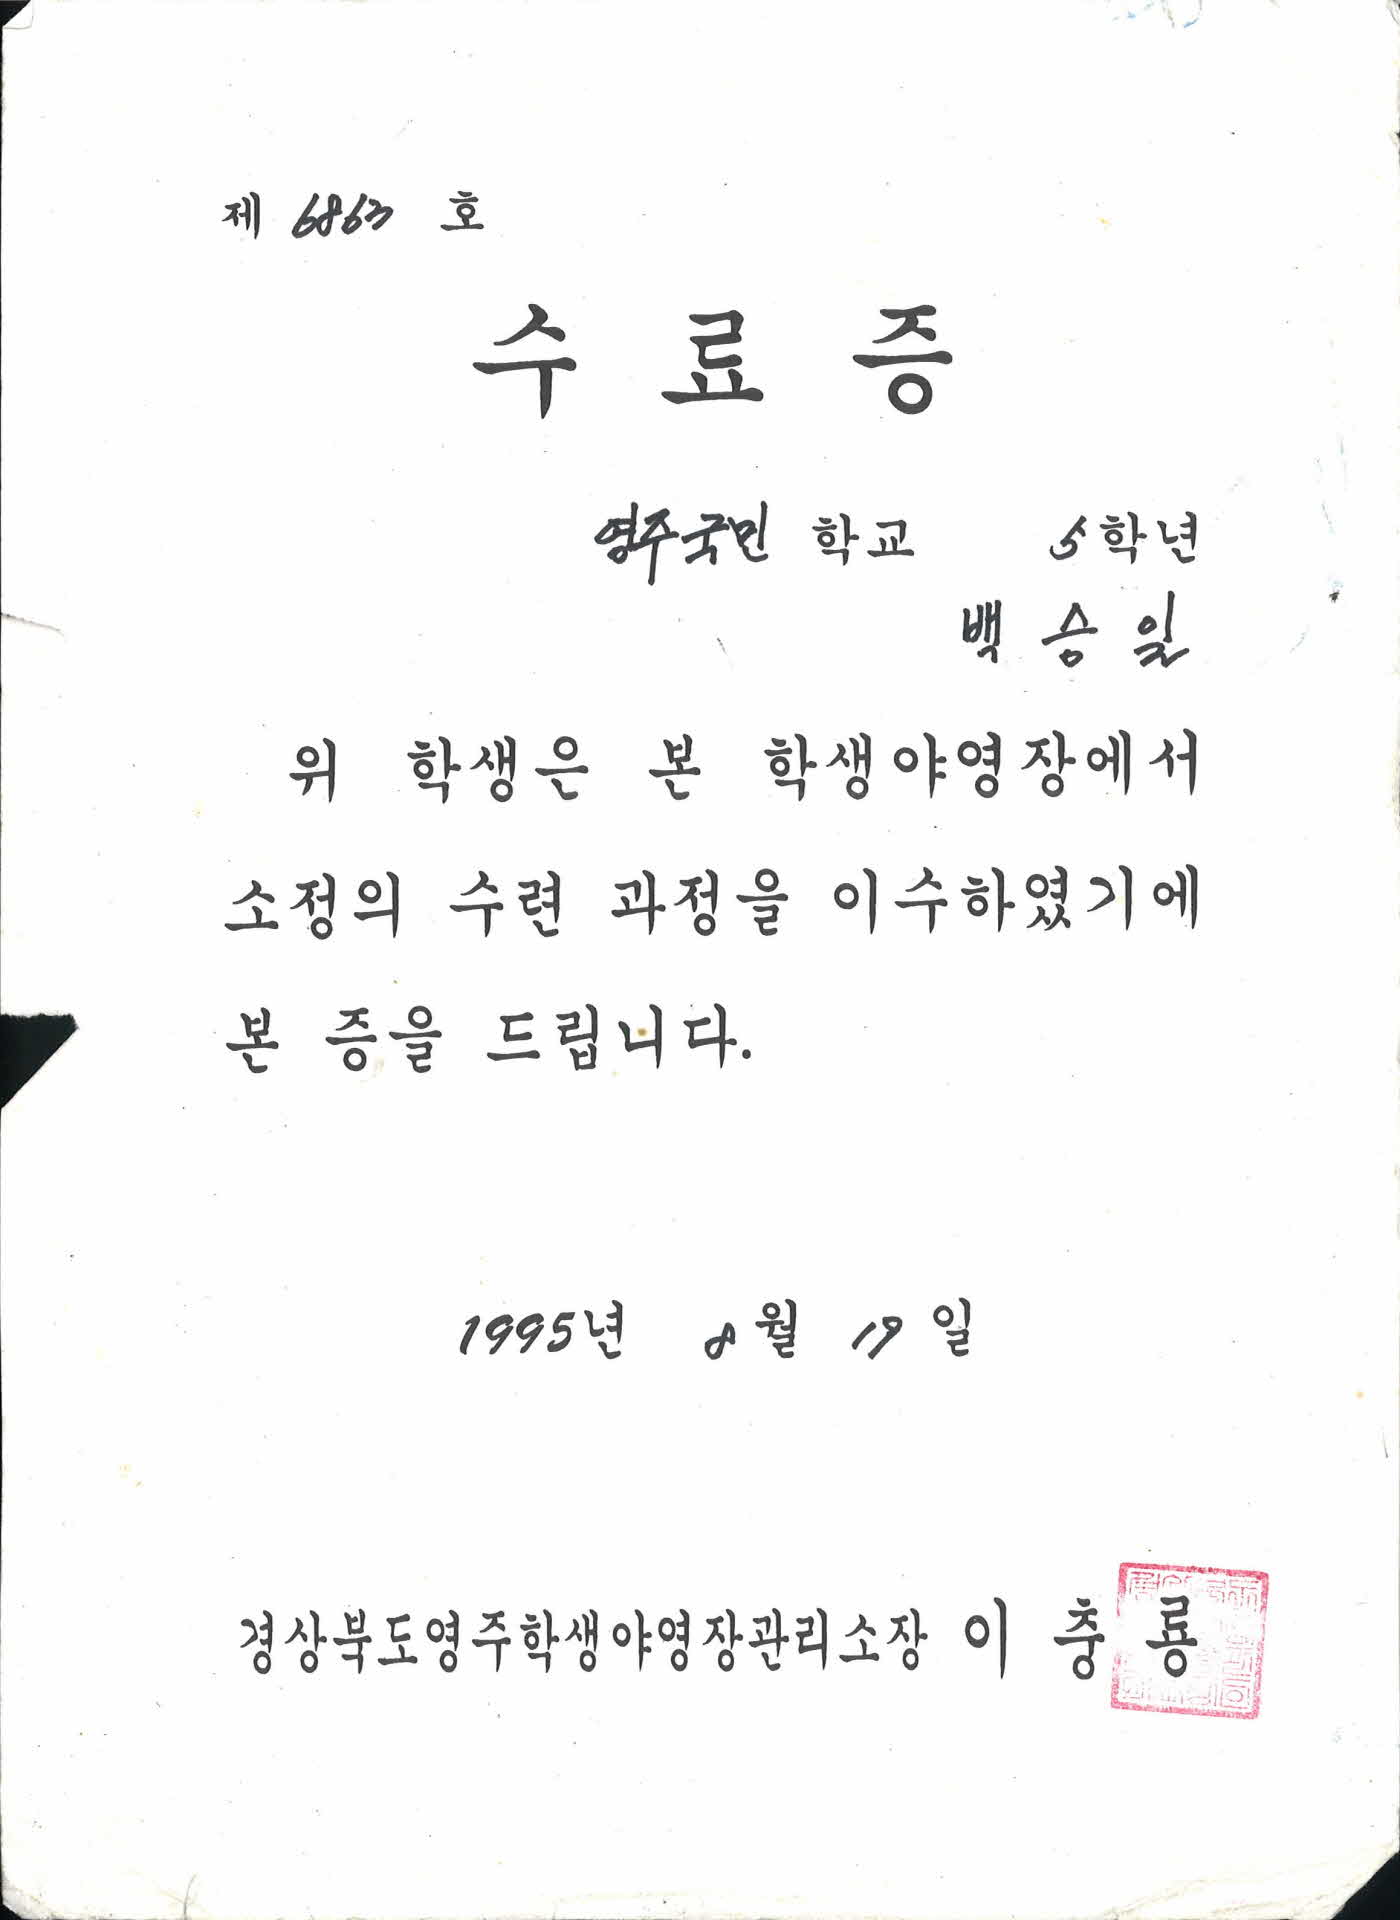 제 6863 호
수 료 증
영주국민 학교 5학년
백 승 일
위 학생은 본 학생야영장에서
소정의 수련 과정을 이수하였기에
본 증을 드립니다.
1995년 8월 19일
경상북도영주학생야영장관리소장 이 충 룡